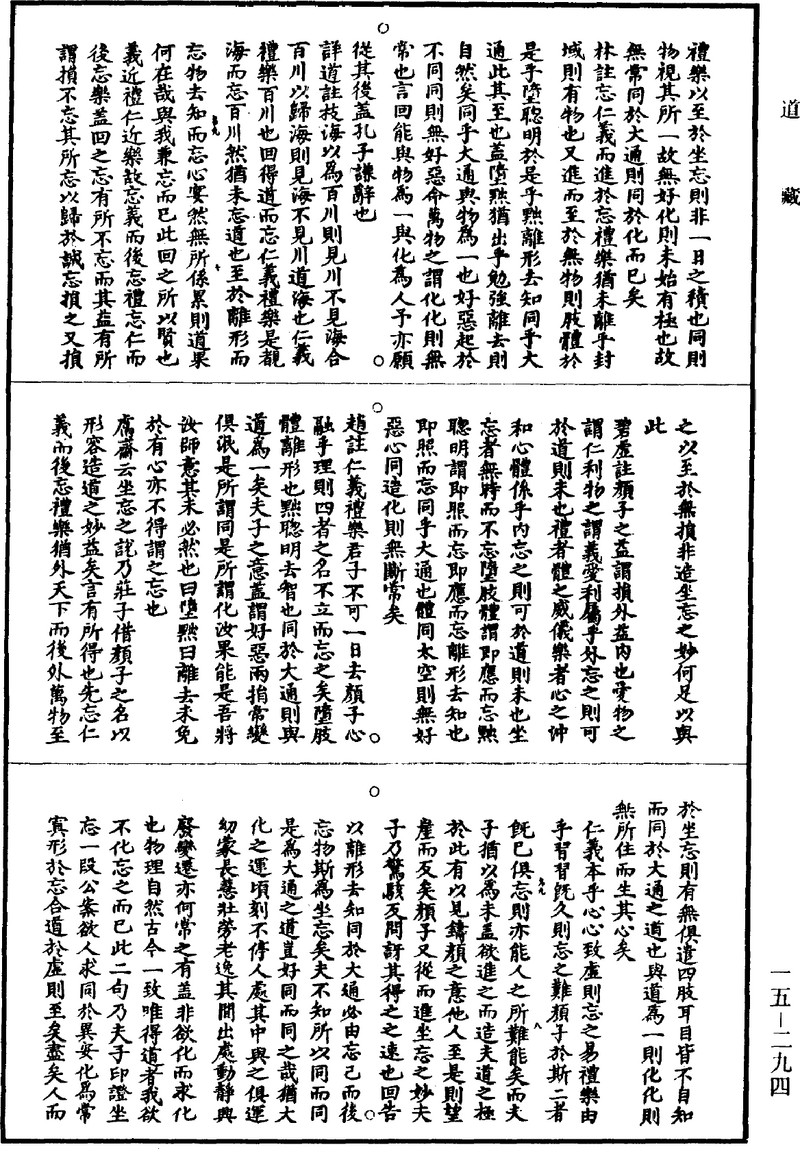 道藏
禮樂以至於坐忘則非一日之積也同則
物視其所一故無好化則未始有極也故
無常同於大通則同於化而已矣
林註忘仁義而進於忘禮樂猶未離乎封
域則有物也又進而至於無物則肢體於
是乎墮聰明於是乎黜離形去知同乎大
通此其至也蓋墮黜猶出乎勉強離去則
自然矣同乎大通與物為一也好惡起於
不同同則無好惡命萬物之謂化化則無
常也言回能與物為一與化為人予亦願
從其後蓋孔子謙辭也
詳道註技海以為百川則見川不見海合
百川以歸海則見海不見川道海也仁義
禮樂百川也回得道而忘仁義禮樂是覩
海而忘百川然猶未忘道也至於離形而
忘物去知而忘心寞然無所係累則道果
何在哉與我兼忘而已此回之所以賢也
義近禮仁近樂故忘義而後忘禮忘仁而
後忘樂蓋回之忘有所不忘而其益有所
謂損不忘其所忘以歸於誠忘損之又損
之以至於無損非造坐忘之妙何足以與
此
碧虛註顏子之益謂損外益內也愛物之
謂仁利物之謂義愛利屬乎外忘之則可
於道則未也禮者體之威儀樂者心之沖
和心體係乎內忘之則可於道則未也坐
忘者無時而不忘墮肢體謂即應而忘黜
聰明謂即照而忘即應而忘離形去知也
即照而忘同乎大通也體同太空則無好
惡心同造化則無斷常矣
趙註仁義禮樂君子不可一日去顏子心
融乎理則四者之名不立而忘之矣墮肢
體離形也黜聰明去智也同於大通則與
道為一矣夫子之意蓋謂好惡兩指常變
俱泯是所謂同是所謂化汝果能是吾將
汝師意其未必然也曰墮黜曰離去未免
於有心亦不得謂之忘也
鬳齋云坐忘之說乃莊子借顏子之名以
形容造道之妙益矣言有所得也先忘仁
義而後忘禮樂猶外天下而後外萬物至
於坐忘則有無俱遣四肢耳目皆不自知
而同於大通之道也與道為一則化化則
無所住而生其心矣
仁義本乎心心致虛則忘之易禮樂由
乎習習既久則忘之難顏子於斯二者
既已俱忘則亦能人之所難能矣而夫
子猶以為未蓋欲進之而造夫道之極
於此有以見鑄顏之意他人至是則望
崖而反矣顏子又從而進坐忘之妙夫
子乃驚駭反問訝其得之之速也回告
以離形去知同於大通必由忘己而後
忘物斯為坐忘矣夫不知所以同而同
是為大通之道豈好同而同之哉猶大
化之運頃刻不停人處其中與之俱運
幼蒙長慧壯勞老逸其間出處動靜興
廢變遷亦何常之有蓋非欲化而求化
也物理自然古今一致唯得道者我欲
不化忘之而已此二句乃夫子印證坐
忘一段公案欲人求同於異安化為常
寘形於忘合道於虛則至矣盡矣人而
一五—二九四